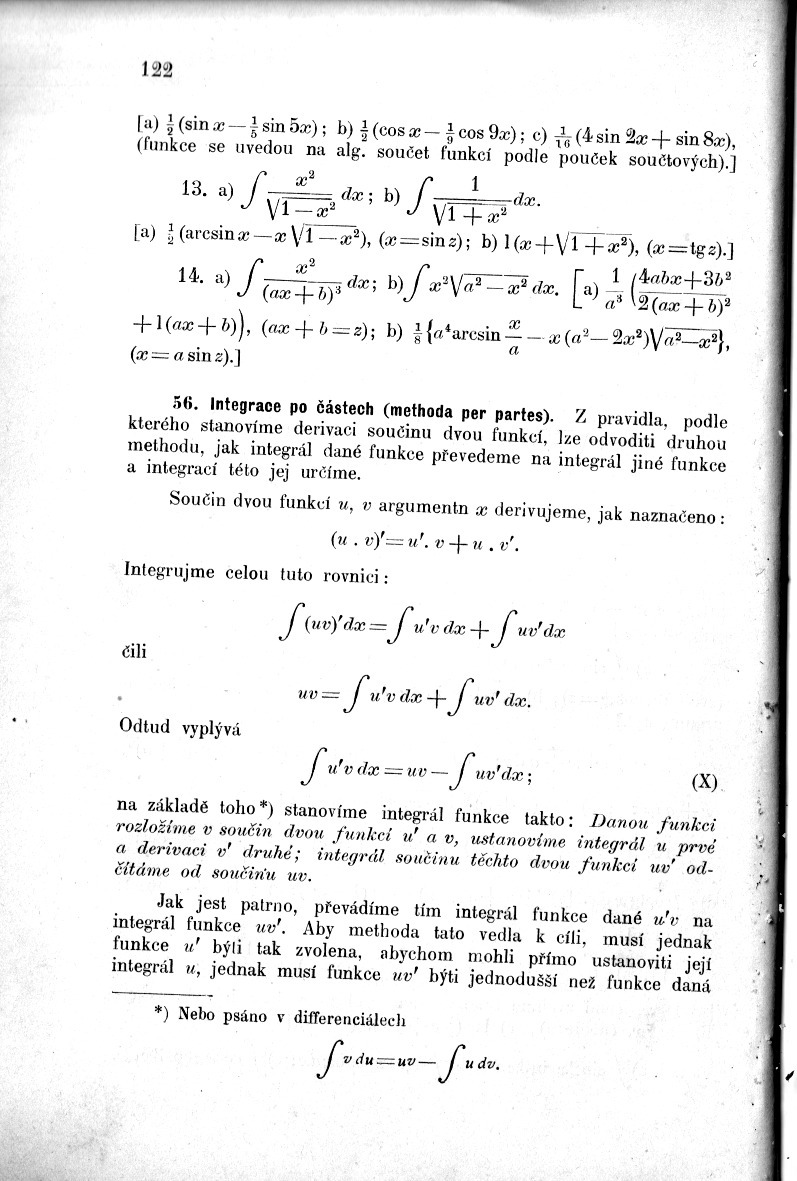 122
[a) ½ (sin x — ⅕ sin 5x); b) ½ (cos x — ⅑ cos 9x); c) 1/16 (4 sin 2x + sin 8x),
(funkce se uvedou na alg. součet funkcí podle pouček součtových).]
13. a) ∫ x²/√(1—x²) dx; b) ∫ 1/√(1+x²) dx.
[a) ½ (arcsin x — x √(1—x²), (x = sin z); b) l (x + √(1+x²), (x = tg z).]
14. a) ∫ x²/(ax+b)³ dx; b) ∫ x²√(a²—x²) dx. [a) 1/a³ ((4abx+3b²)/(2(ax+b)²
+ l (ax+b)), (ax+b=z); b) ⅛ {a⁴ arcsin x/a — x (a²—2x²)√(a²—x²)},
(x = a sin z).]
56. Integrace po částech (methoda per partes). Z pravidla, podle
kterého stanovíme derivaci součinu dvou funkcí, lze odvoditi druhou
methodu, jak integrál dané funkce převedeme na integrál jiné funkce
a integrací této jej určíme.
Součin dvou funkcí u, v argumentn x derivujeme, jak naznačeno:
(u . v)′ = u′. v + u . v′.
Integrujme celou tuto rovnici:
∫ (uv)′ dx = ∫ u′v dx + ∫ uv′ dx
čili
uv = ∫ u′v dx + ∫ uv′ dx.
Odtud vyplývá
∫ u′v dx = uv — ∫ uv′ dx; (X)
na základě toho *) stanovíme integrál funkce takto: Danou funkci
rozložíme v součin dvou funkcí u′ a v, ustanovíme integrál u prvé
a derivaci v′ druhé; integrál součinu těchto dvou funkcí uv′ od-
čítáme od součinu uv.
Jak jest patrno, převádíme tím integrál funkce dané u′v na
integrál funkce uv′. Aby methoda tato vedla k cíli, musí jednak
funkce u′ býti tak zvolena, abychom mohli přímo ustanoviti její
integrál u, jednak musí funkce uv′ býti jednodušší než funkce daná
*) Nebo psáno v differenciálech
∫ v du = uv — ∫ u dv.